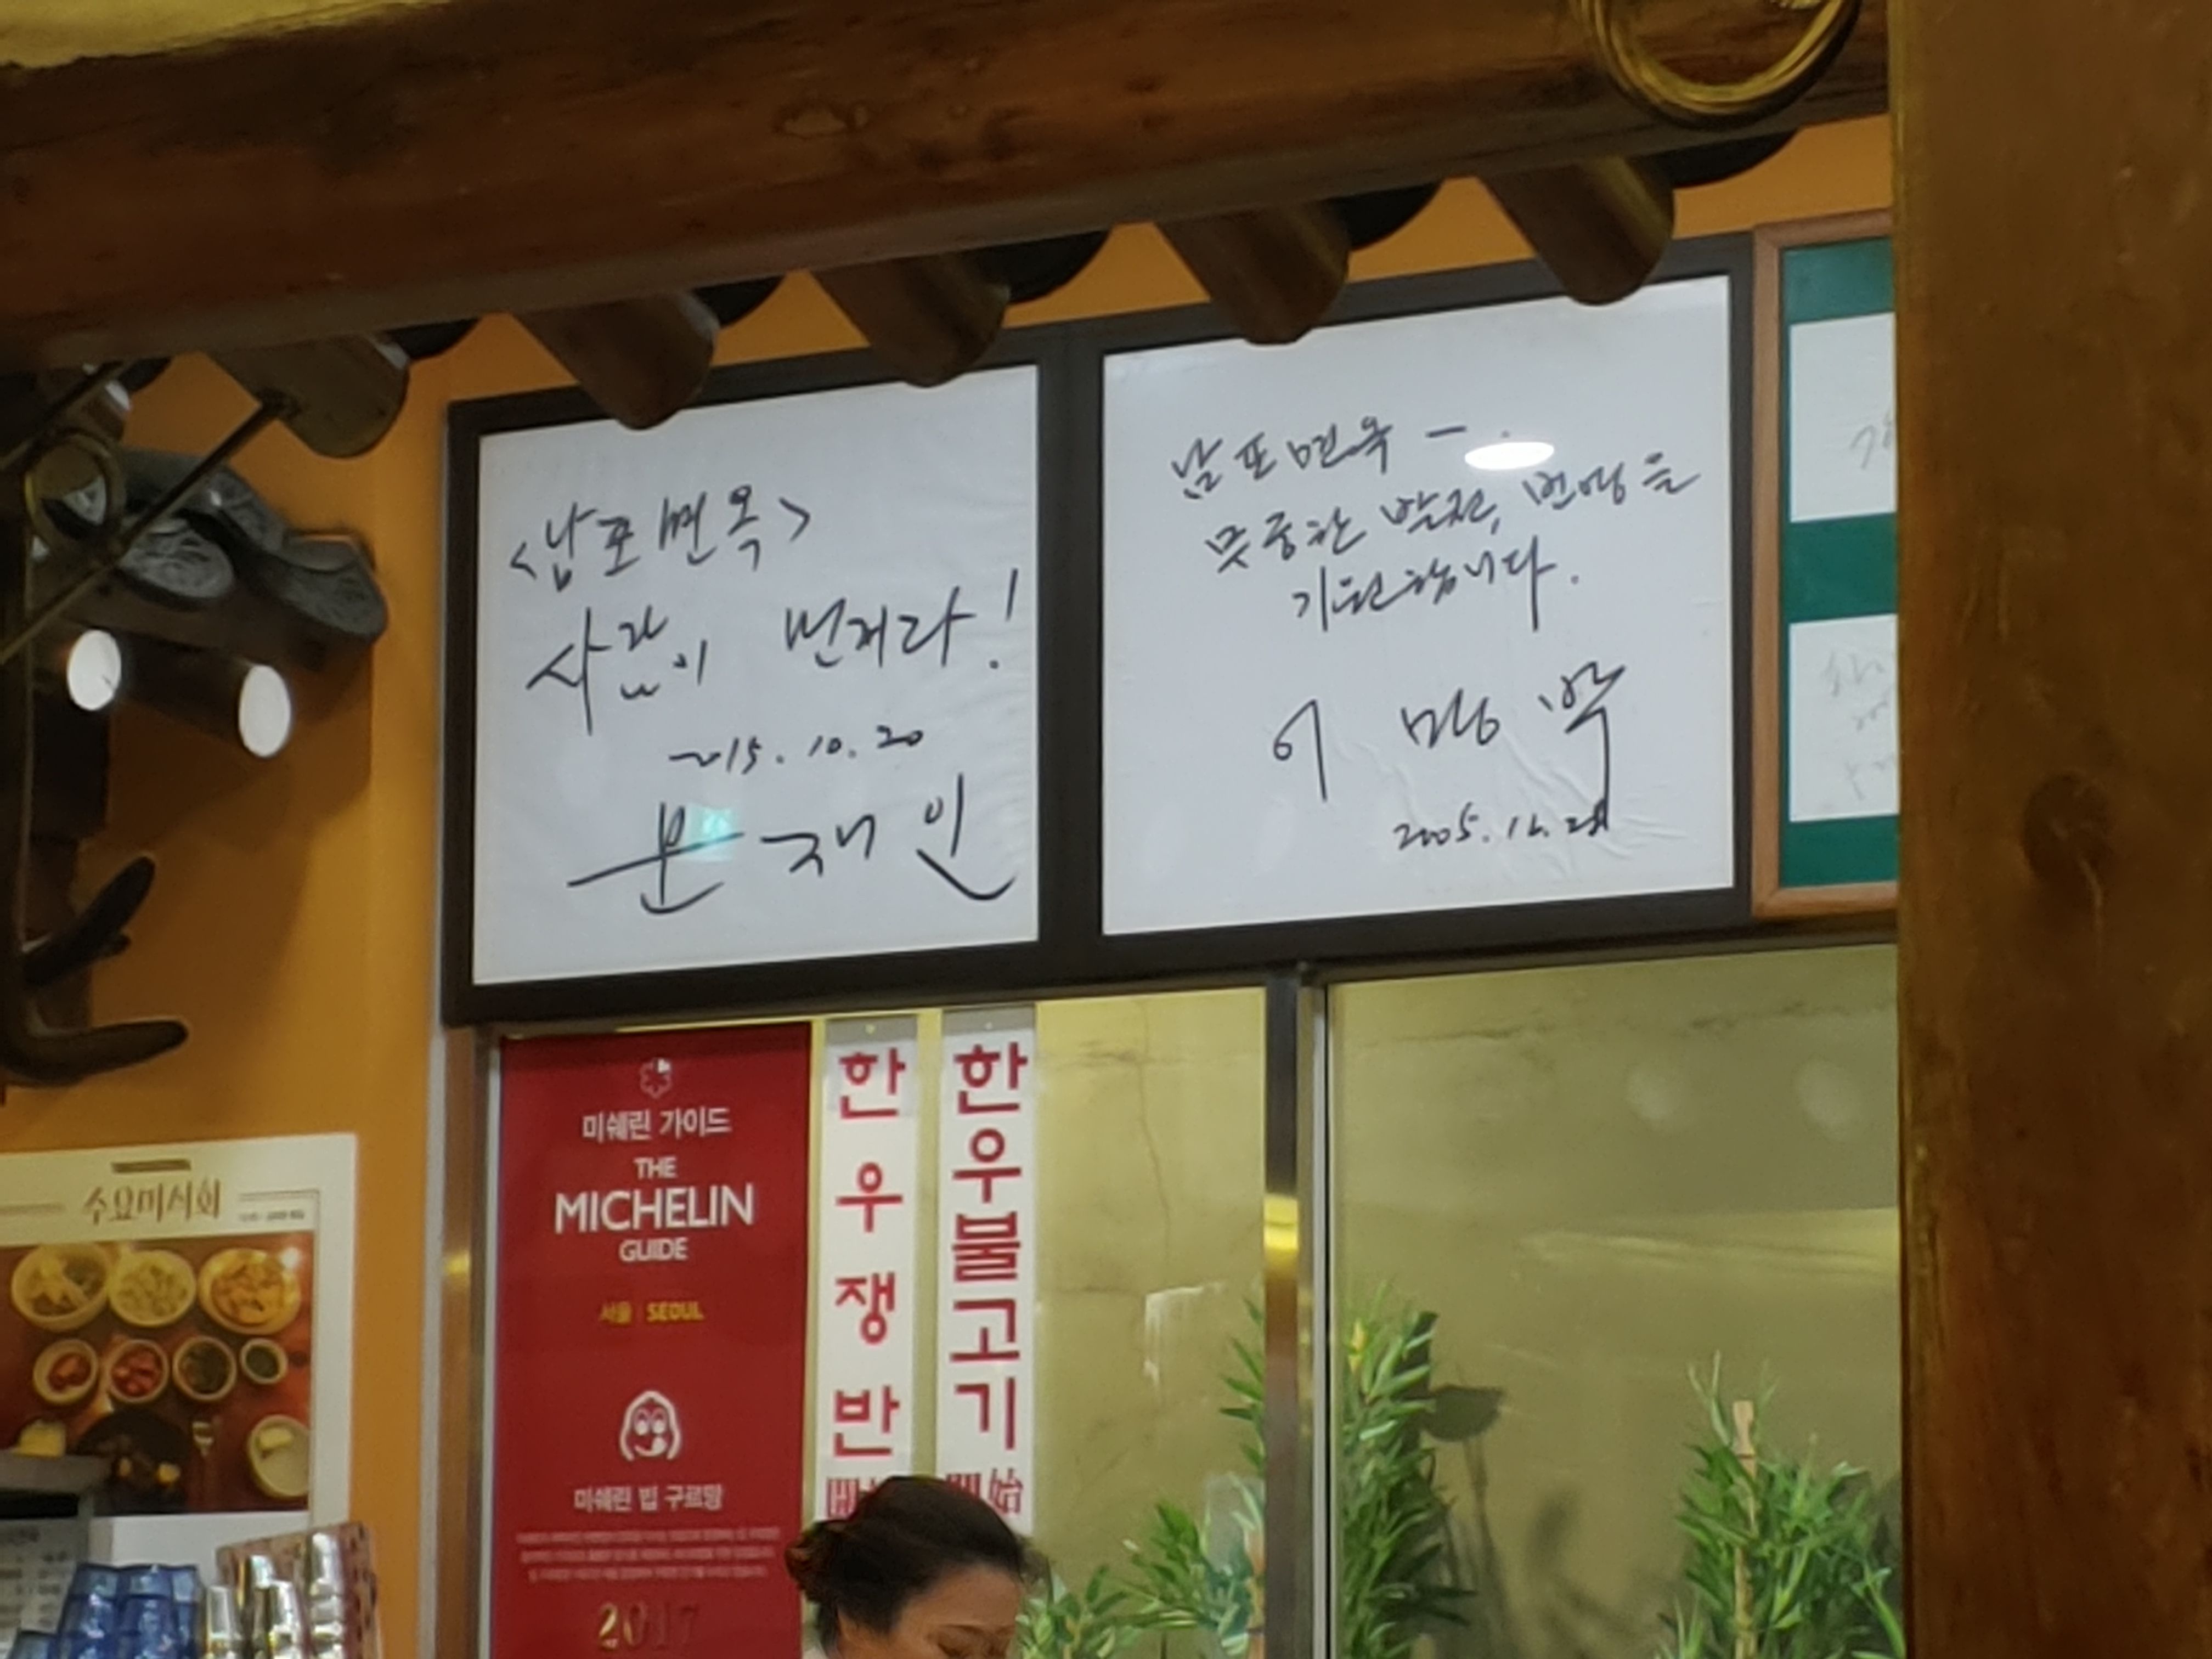 <남포면옥>
사람이 먼저다!
2015. 10. 20
문재인
남포면옥 —.
무궁한 발전, 번영을
기원합니다.
이명박
2005. 12.
미쉐린 가이드
THE
MICHELIN
GUIDE
서울 SEOUL
미쉐린 빕 구르망
2017
한우쟁반
한우불고기 開始
수요미식회